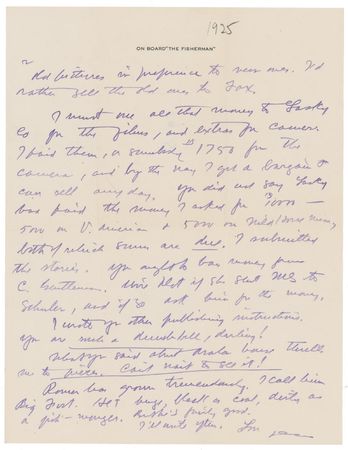 1925
ON BOARD "THE FISHERMAN"
old pictures in preference to new ones. I'd
rather sell the old ones to Fox.
I must owe all that money to Lasky
Co for the films, and extras for camera.
I paid them, or somebody 1750 for the
camera, and by the way I got a bargain &
can sell any day. You did not say Lasky
had paid the money I asked for 10000 —
5000 on V. American & 5000 on Wild Horse Mesa,
both of which sums are due. I submitted
the stories. You ought to have money from
C. Gentleman. Write Hoyt if she sent MS to
Schuler, and if so ask him for the money.
I wrote you other publishing instructions.
you are such a dumbbell, darling!
What you said about house thrills
me to pieces. Can't wait to see it!
Romer has grown tremendously. I call him
Big Foot. He's huge, black as coal, dirty as
a fish-monger. fairly good.
I'll write often. Love